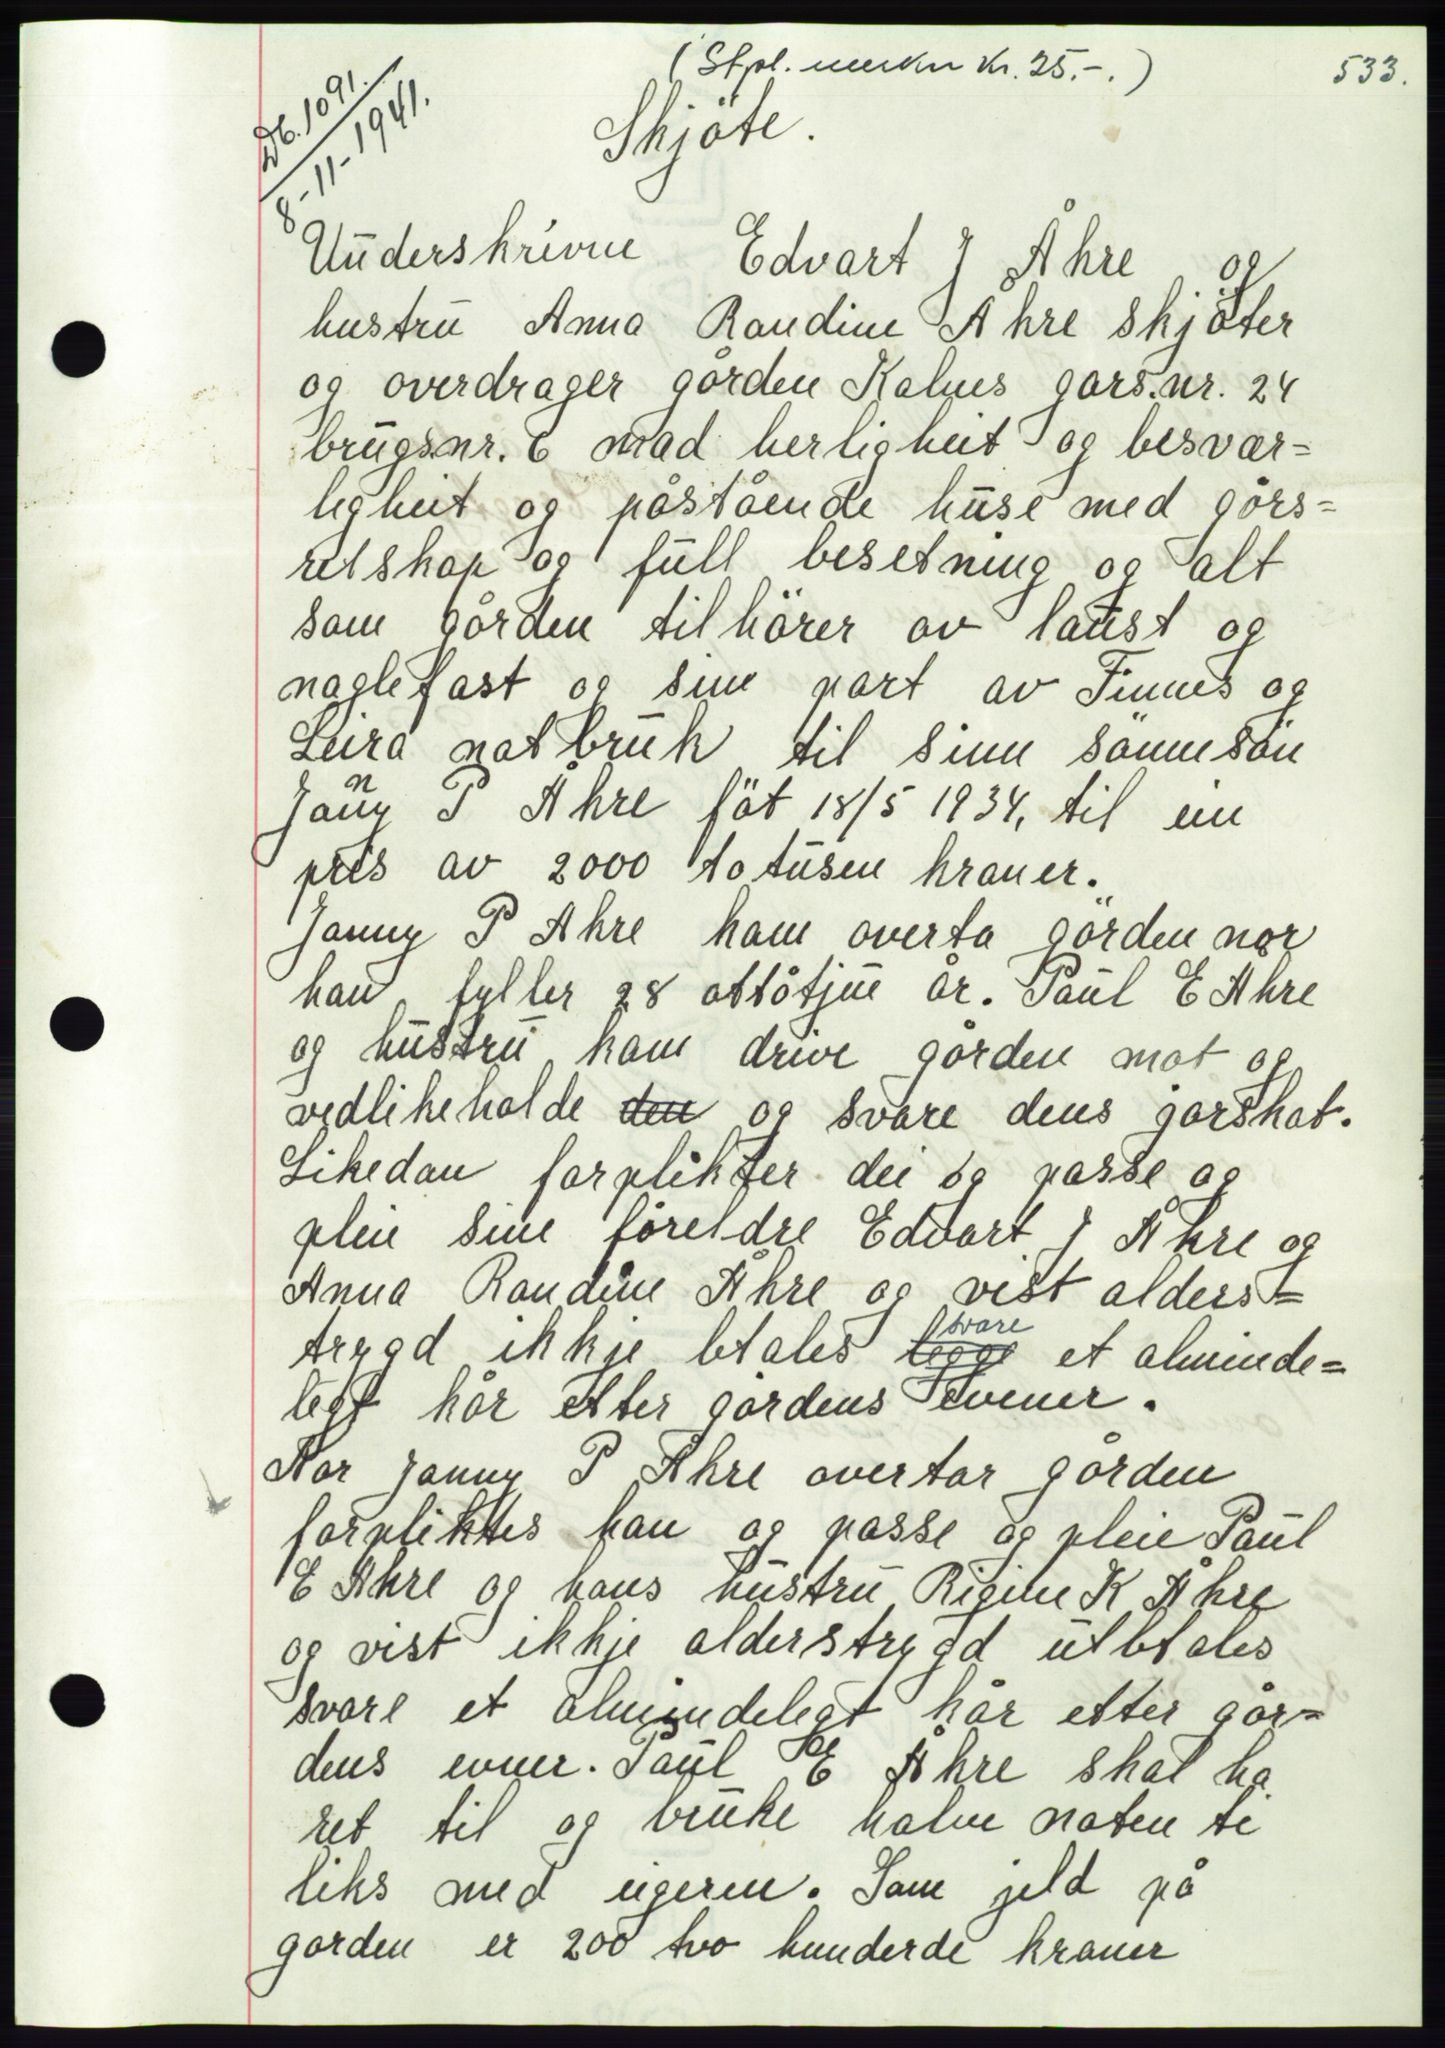 (Stpl. merker kr. 25.-.)
533.
Db. 1091.
8-11-1941.
Skjöte.
Underskrivne Edvart J Åkre og
hustru Anna Randine Åkre skjöter
og overdrager gården Kalnes gars.nr. 24
brugsnr. 6 mad herligheit og besvær=
ligheit og påstående huse med gårs=
retskap og full besetning og alt
som gården tilhörer av laust og
naglefast og sine part av Finnes og
Leira notbruk til sinn sönnesön
Janny P Åkre föt 18/5 1934, til ein
pris av 2000 totusen kroner.
Janny P Åkre kann overta gården når
han fyller 28 ottötjue år. Paul E Åkre
og hustru kann drive gården mot og
vedlikeholde den og svare dens jorskat.
Likedan forplikter dei og passe og
pleie sine foreldre Edvart J Åkre og
Anna Randine Åkre og vist alders=
trygd ikkje btales legge svare et alminde=
legt kår etter gårdens evener.
Når Janny P Åkre overtar gården
forpliktes han og passe og pleie Paul
E Åkre og hans hustru Rigine K Åkre
og vist ikkje alderstrygd utbtales
svare et almindelegt kår etter går=
dens evner. Paul E Åkre skal ha
ret til og bruke halve noten ti
liks med eigeren. Som jeld på
garden er 200 tvo hunderde kroner